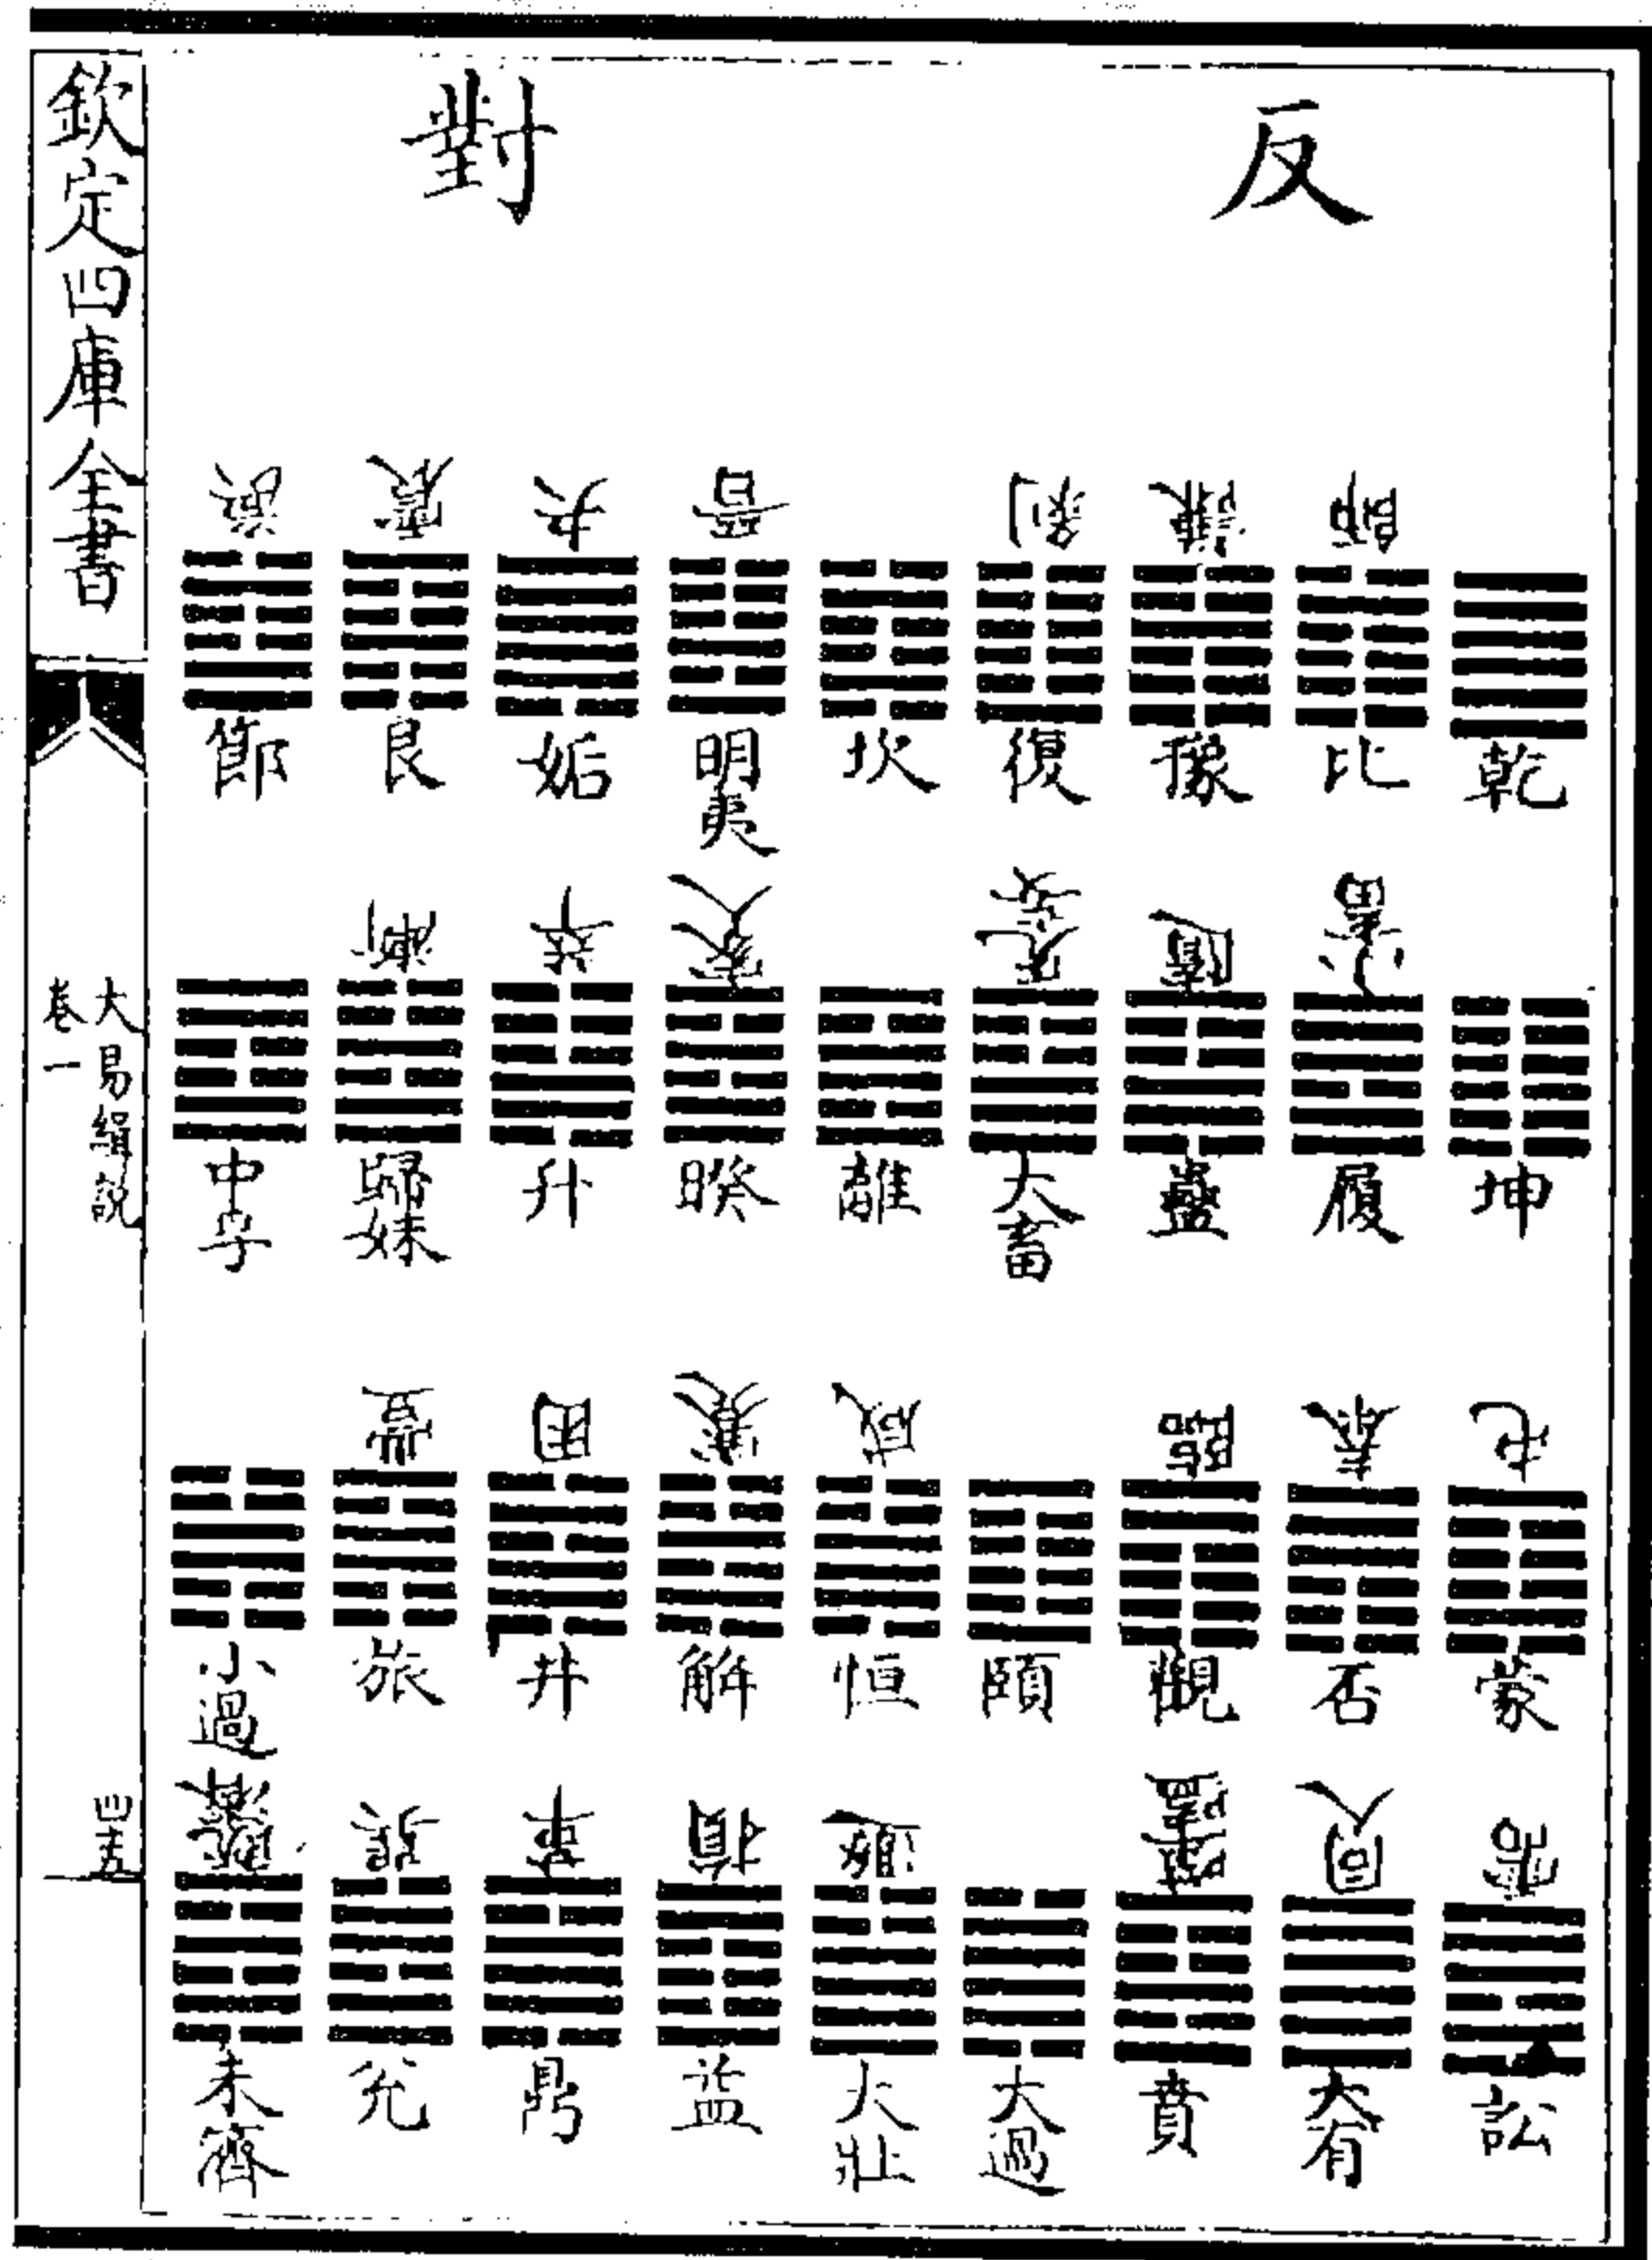 反
對
乾
坤
屯
蒙
需
訟
師
比
小畜
履
泰
否
同人
大有
謙
豫
隨
蠱
臨
觀
噬嗑
賁
剝
復
无妄
大畜
頤
大過
坎
離
咸
恒
遯
大壯
晉
明夷
家人
睽
蹇
解
損
益
夬
姤
萃
升
困
井
革
鼎
震
艮
漸
歸妹
豐
旅
巽
兌
渙
節
中孚
小過
既濟
未濟
欽定四庫全書
大易緝說
卷一
四十五